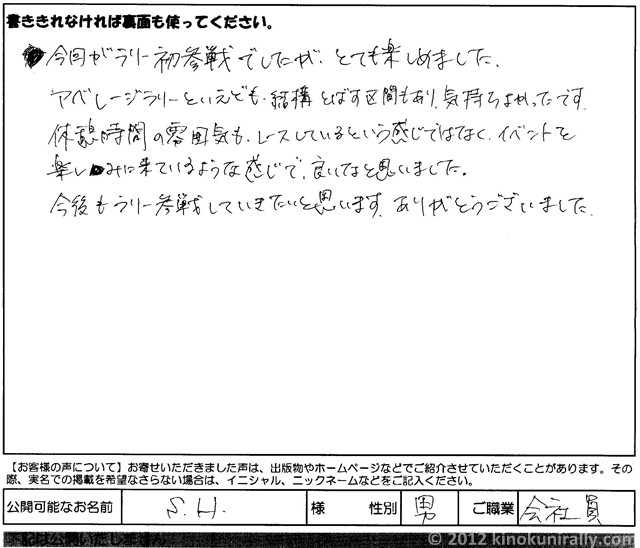 書ききれなければ裏面も使ってください。
今回がラリー初参戦でしたが、とても楽しめました。
アベレージラリーといえども、結構とばす区間もあり、気持ちよかったです。
休憩時間の雰囲気も、レースしているという感じではなく、イベントを
楽しみに来ているような感じで、良いなと思いました。
今後もラリー参戦していきたいと思います。ありがとうございました。
【お客様の声について】お寄せいただきました声は、出版物やホームページなどでご紹介させていただくことがあります。その
際、実名での掲載を希望なさらない場合は、イニシャル、ニックネームなどをご記入ください。
公開可能なお名前 S.H. 様 性別 男 ご職業 会社員
© 2012 kinokunirally.com